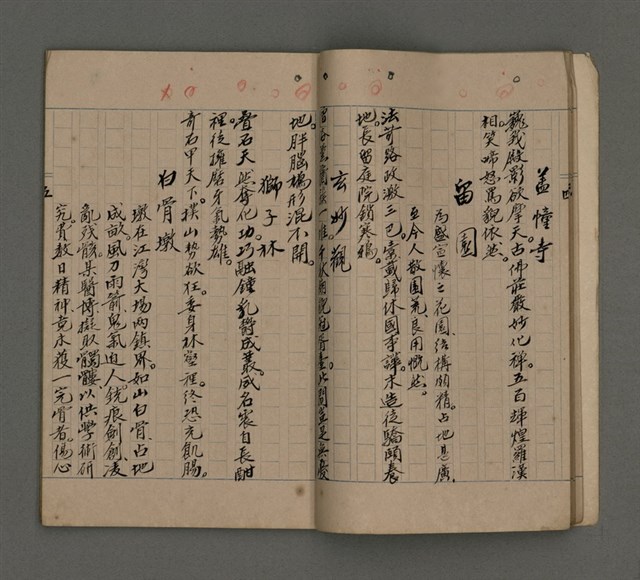 孟憧寺
巍峩殿影欲摩天。古佛莊嚴妙化禪。五百輝煌羅漢
相。笑啼怒罵貌依然。
留園
為盛宣懷之花園結構頗精。占地甚廣。
至今人散園荒。良用慨然。
法苛路政激三巴。棄職歸休國事譁。木造徒驕頤養
地。長留庭院鎖寒鴉。
玄妙觀
地。肝腦塲形混不開。
獅子林
疊石天然奪化功。巧融鍾乳鬱成叢。威名豈自長酣
裡。徒擁磨牙氣勢雄。
奇石甲天下。撲山勢欲狂。委身林壑裡。終恐充飢腸。
白骨墩
墩在江灣大場兩鎮界。如山白骨。占地
成畝。風刀雨箭。鬼氣迫人。銃痕劍創。凌
亂殘骸。某醫博擬取髑髏以供學術研
究。費數日精神。竟未獲一完骨者。傷心
四
五